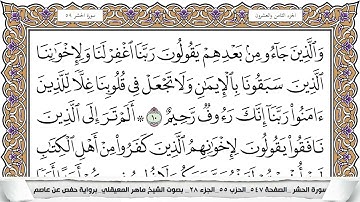 الجزء الثامن والعشرون
سورة الحشر ٥٩
وَالَّذِينَ جَاءُو مِنْ بَعْدِهِمْ يَقُولُونَ رَبَّنَا اغْفِرْ لَنَا وَلِإِخْوَانِنَا
الَّذِينَ سَبَقُونَا بِالْإِيمَٰنِ وَلَا تَجْعَلْ فِي قُلُوبِنَا غِلًّا لِلَّذِينَ
ءَامَنُوا رَبَّنَا إِنَّكَ رَءُوفٌ رَحِيمٌ ١٠ ۞ أَلَمْ تَرَ إِلَى الَّذِينَ
نَافَقُوا يَقُولُونَ لِإِخْوَٰنِهِمُ الَّذِينَ كَفَرُوا مِنْ أَهْلِ الْكِتَٰبِ
سورة الحشر _الصفحة ٥٤٧_الحزب ٥٥_الجزء ٢٨_ بصوت الشيخ ماهر المعيقلي_ برواية حفص عن عاصم